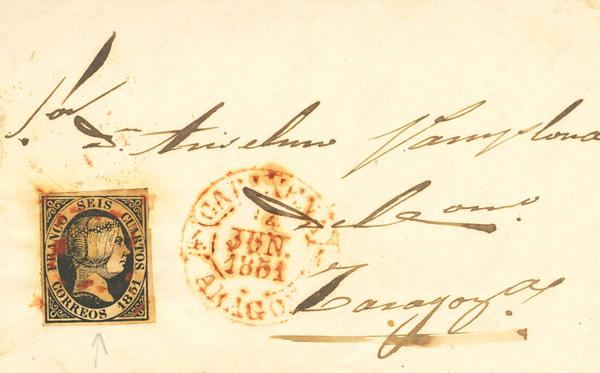 Sor
Dn Anselmo Pamplona
del Como
Zaragoza
FRANCO SEIS CUARTOS
CORREOS 1851
JUN.
1851